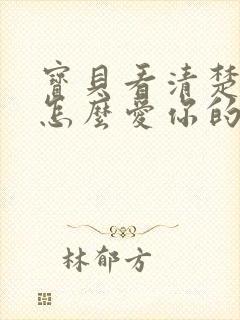 寶貝看清楚
怎麼愛你的
林郁方